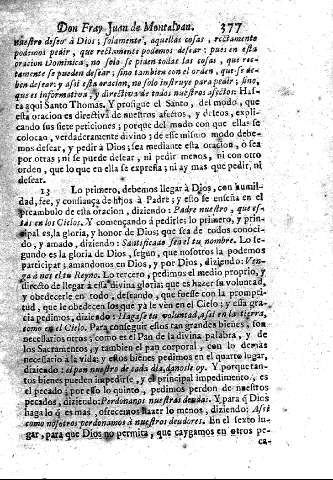 Don Fray Juan de Montalvan. 377
nuestro desear à Dios; solamente, aquellas cosas, rectamente
podemos pedir, que rectamente podemos desear: pues en esta
oracion Dominica, no solo se piden todas las cosas, que rec-
tamente se pueden desear; sino tambien con el orden, que se de-
ben desear; y assi esta oracion, no solo instruye para pedir; sino,
que es informativa, y directiva de todos nuestros afectos: Has-
ta aqui Santo Thomas. Y prosigue el Santo, del modo, que
esta oracion es directiva de nuestros afectos, y deseos, expli-
cando sus siete peticiones; porque del modo con que ellas se
colocan, verdaderamente divino; y de esse mismo modo debe-
mos desear, y pedir à Dios; sea mediante esta oracion, ò sea
por otras; ni se puede desear, ni pedir menos, ni con otro
orden, que lo que en ella se expresa; ni ay mas que pedir, ni
desear.
13 Lo primero, debemos llegar à Dios, con humil-
dad, fee, y confiança de hijos à Padre; y esso se enseña en el
preambulo de esta oracion, diziendo: Padre nuestro, que es-
tàs en los Cielos. Y començando à pedirle: lo primero, y prin-
cipal es, la gloria, y honor de Dios; que sea de todos conoci-
do, y amado, diziendo: Santificado sea el tu nombre. Lo se-
gundo es la gloria de Dios, segun, que nosotros la podemos
participar; amandonos en Dios, y por Dios, diziendo: Ven-
ga à nos el tu Reyno. Lo tercero, pedimos el medio proprio, y
directo de llegar à essa divina gloria: que es hazer su voluntad,
y obedecerle en todo, deseando, que fuesse con la prompti-
tud, que le obedecen los que yà le ven en el Cielo; y essa gra-
cia pedimos, diziendo: Hagase tu voluntad, assi en la tierra,
como en el Cielo. Para conseguir essos tan grandes bienes, son
necessarios otros; como es el Pan de la divina palabra, y de
los Sacramentos, y tambien el pan corporal, con lo demàs
necessario à la vida; y essos bienes pedimos en el quarto lugar,
diziendo: el pan nuestro de cada dia, danosle oy. Y porque tan-
tos bienes pueden impedirse, y el principal impedimento, es
el pecado; por esso lo quinto, pedimos perdon de nuestros
pecados, diziendo: Perdonanos nuestras deudas. Y para q̃ Dios
haga lo q̃ es mas, ofrecemos hazer lo menos, diziendo: Assi
como nosotros perdonamos à nuestros deudores. En el sexto lu-
gar, para que Dios no permita, que caygamos en otros pe-
ca-